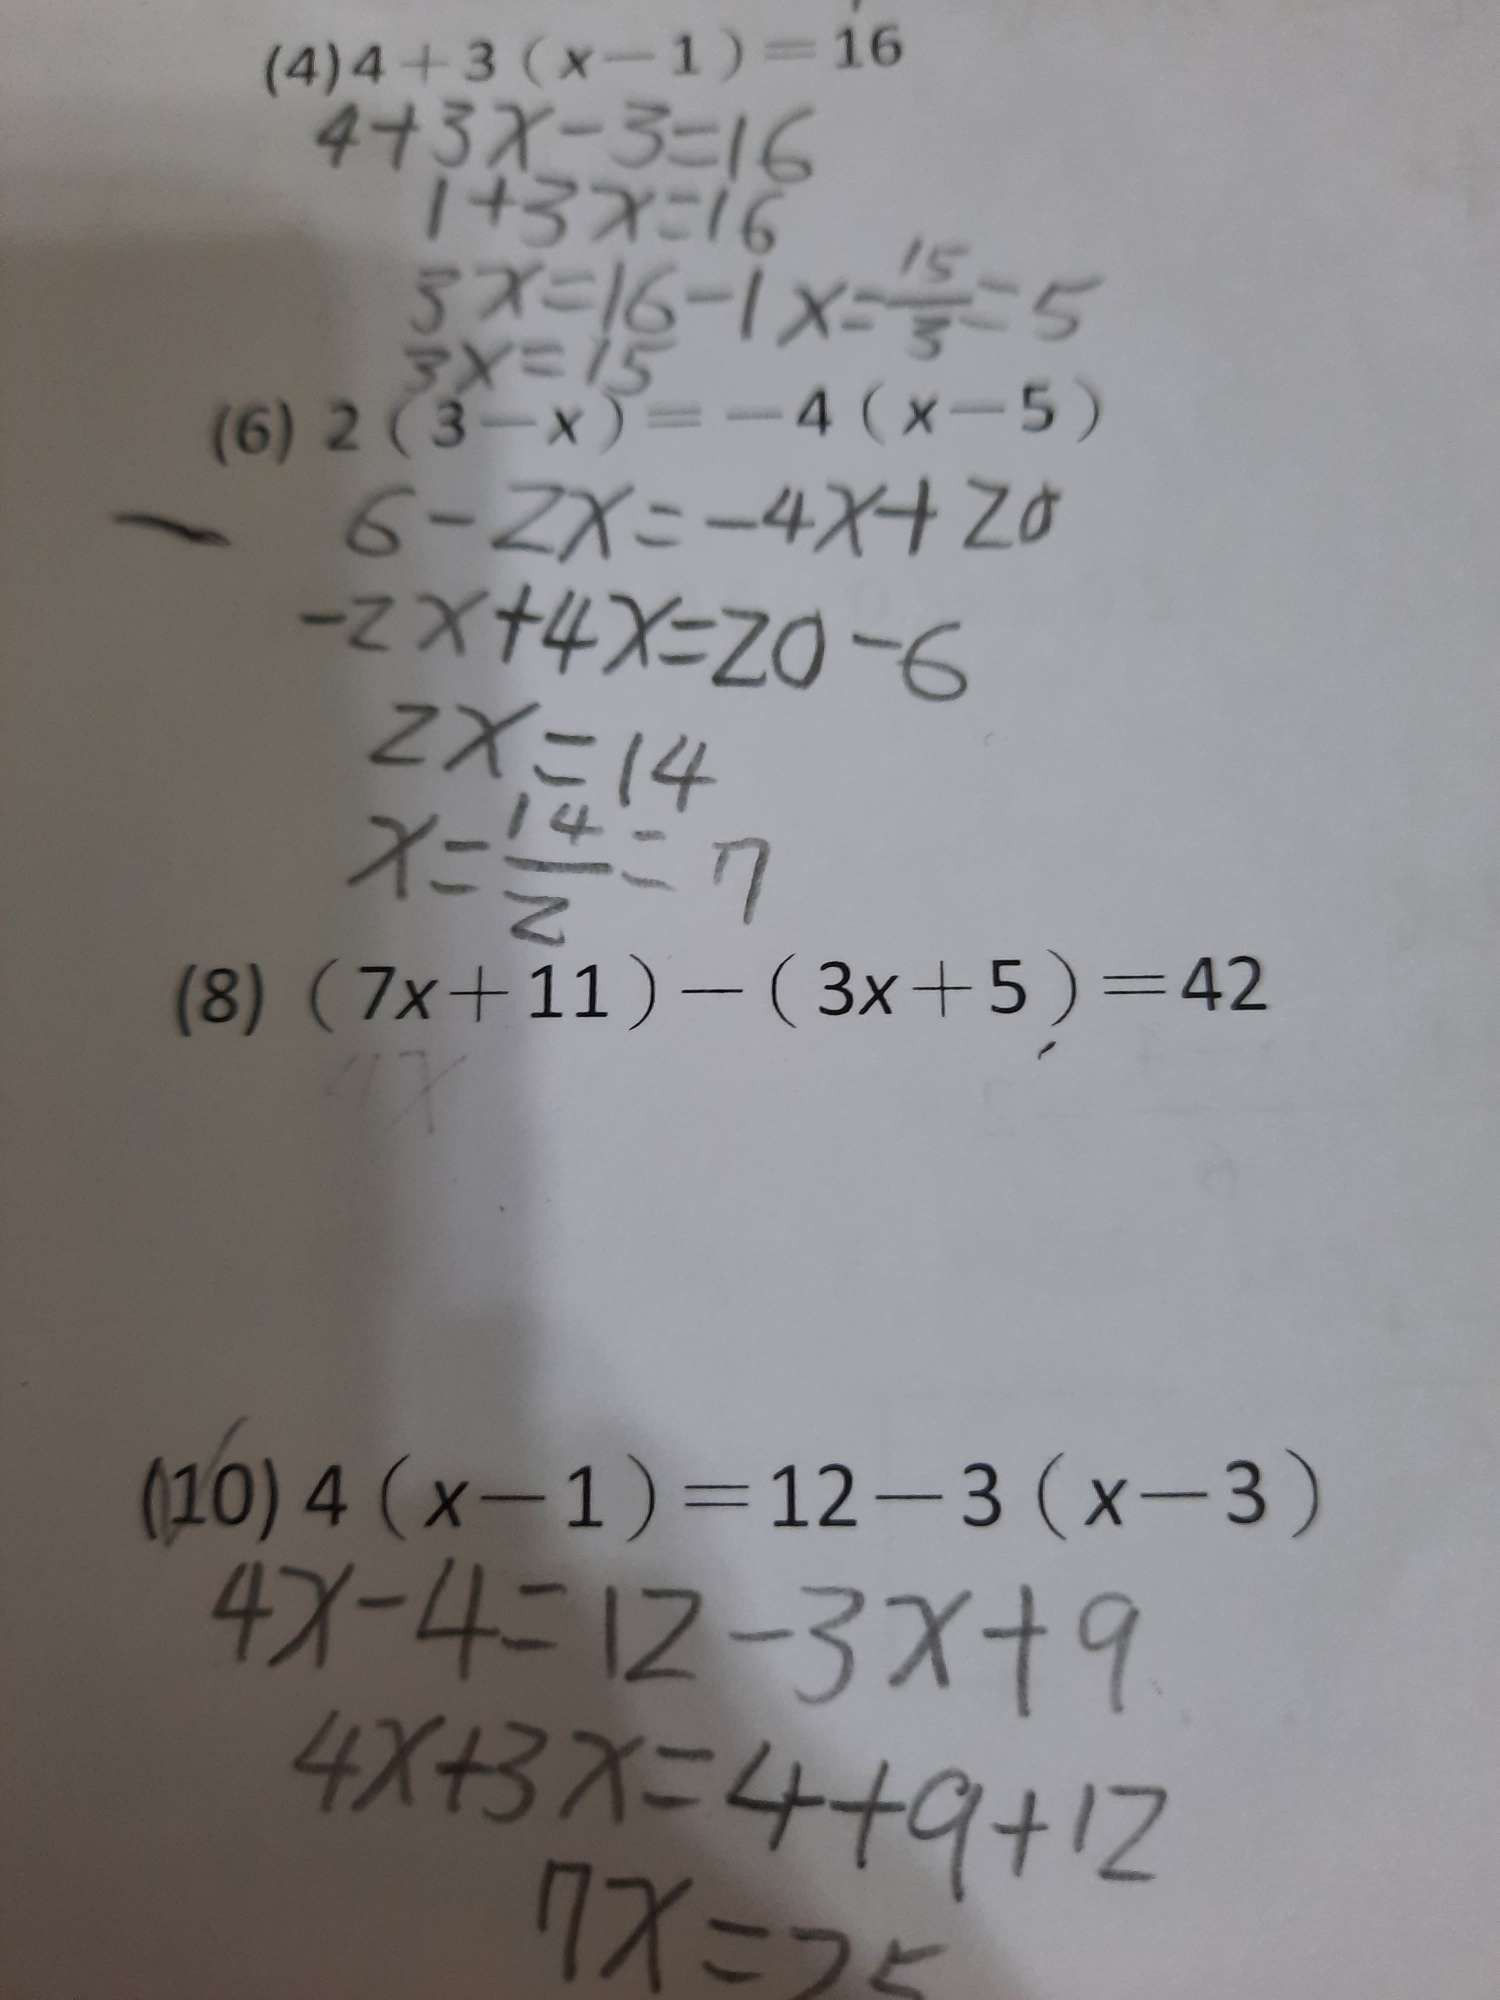 (4) 4+3(x-1)=16
4+3x-3=16
1+3x=16
3x=16-1 x=15/3=5
3x=15
(6) 2(3-x)=-4(x-5)
6-2x=-4x+20
-2x+4x=20-6
2x=14
x=14/2=7
(8) (7x+11)-(3x+5)=42
4x
(10) 4(x-1)=12-3(x-3)
4x-4=12-3x+9
4x+3x=4+9+12
7x=25